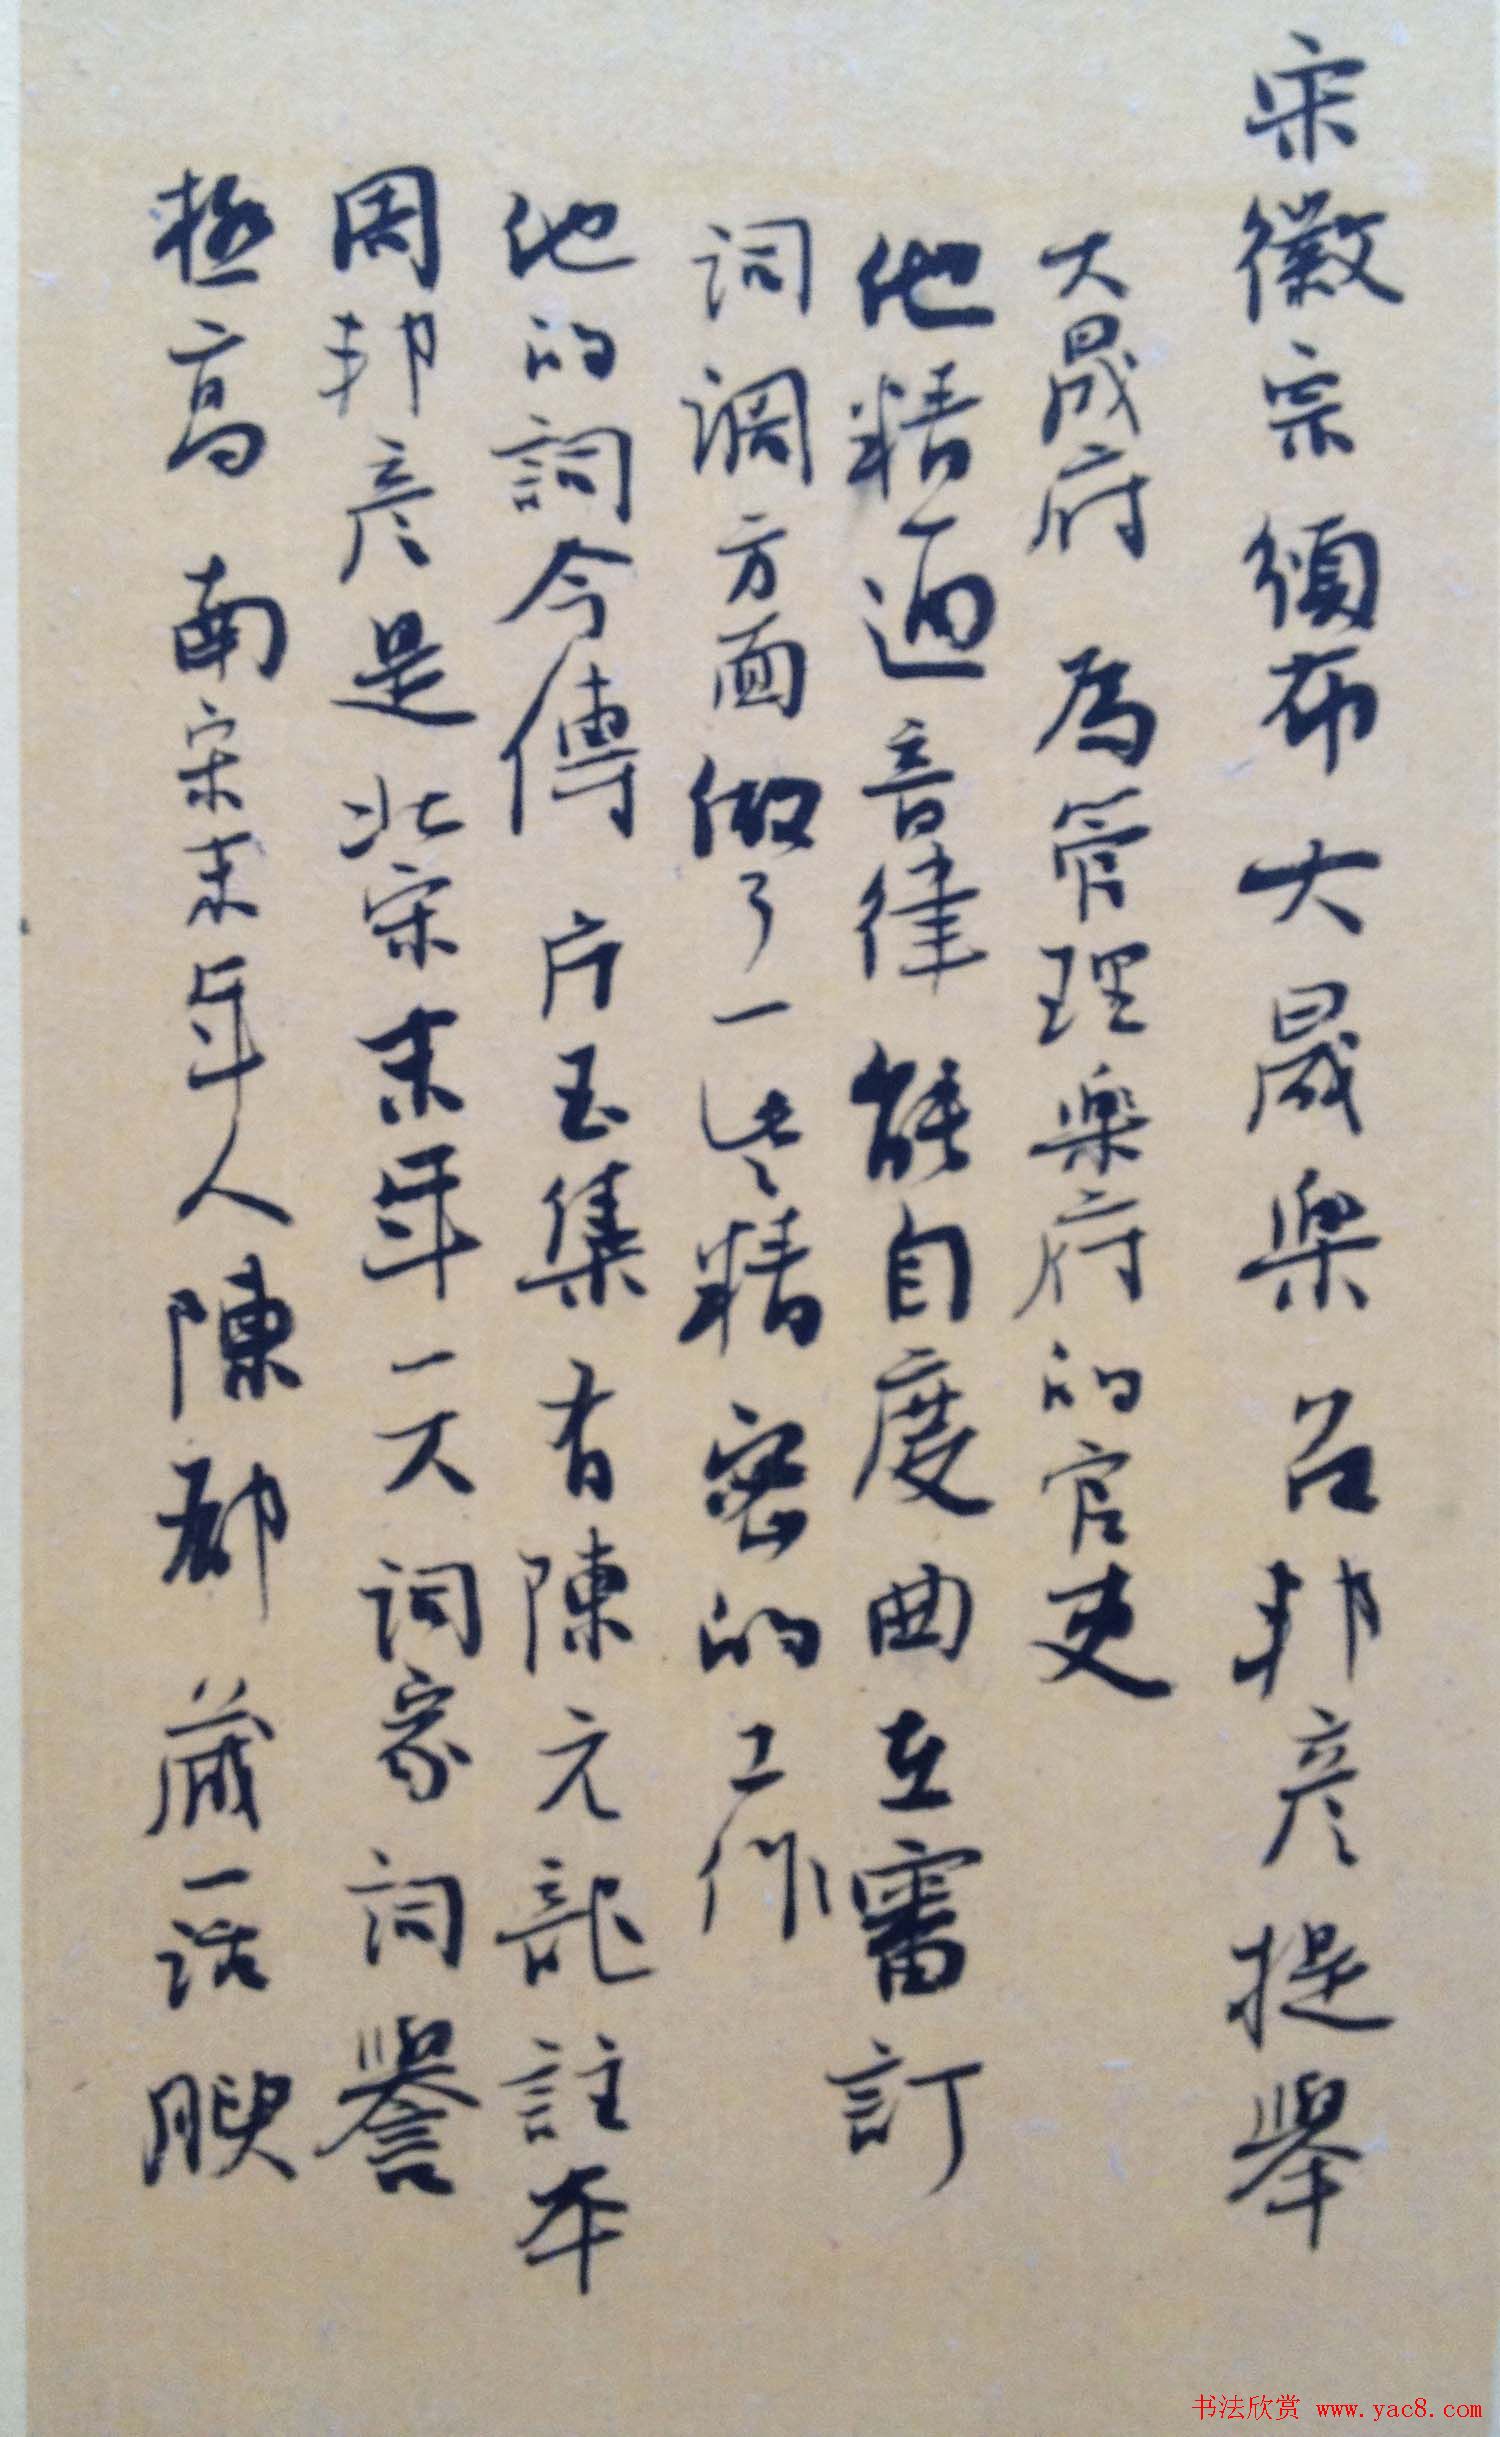 宋徽宗頒布大晟樂召邦彦提舉
大晟府 為管理樂府的官吏
他精通音律能自度曲在審訂
词调方面做了一些精密的工作
他的詞今傳 片玉集有陳元龍註本
周邦彦是北宋末年一大词家词譽
極高 南宋末年人陳郁 藏一话腴
书法欣赏 www.yac8.com